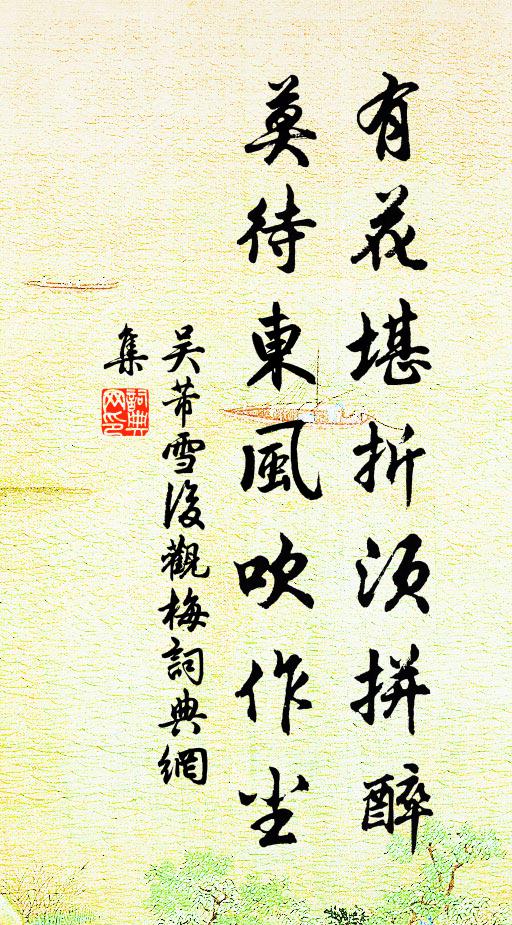 有花堪折須拼醉
莫待東風吹作尘
吴芾雪後觀梅詞典網
集
詞典
网印